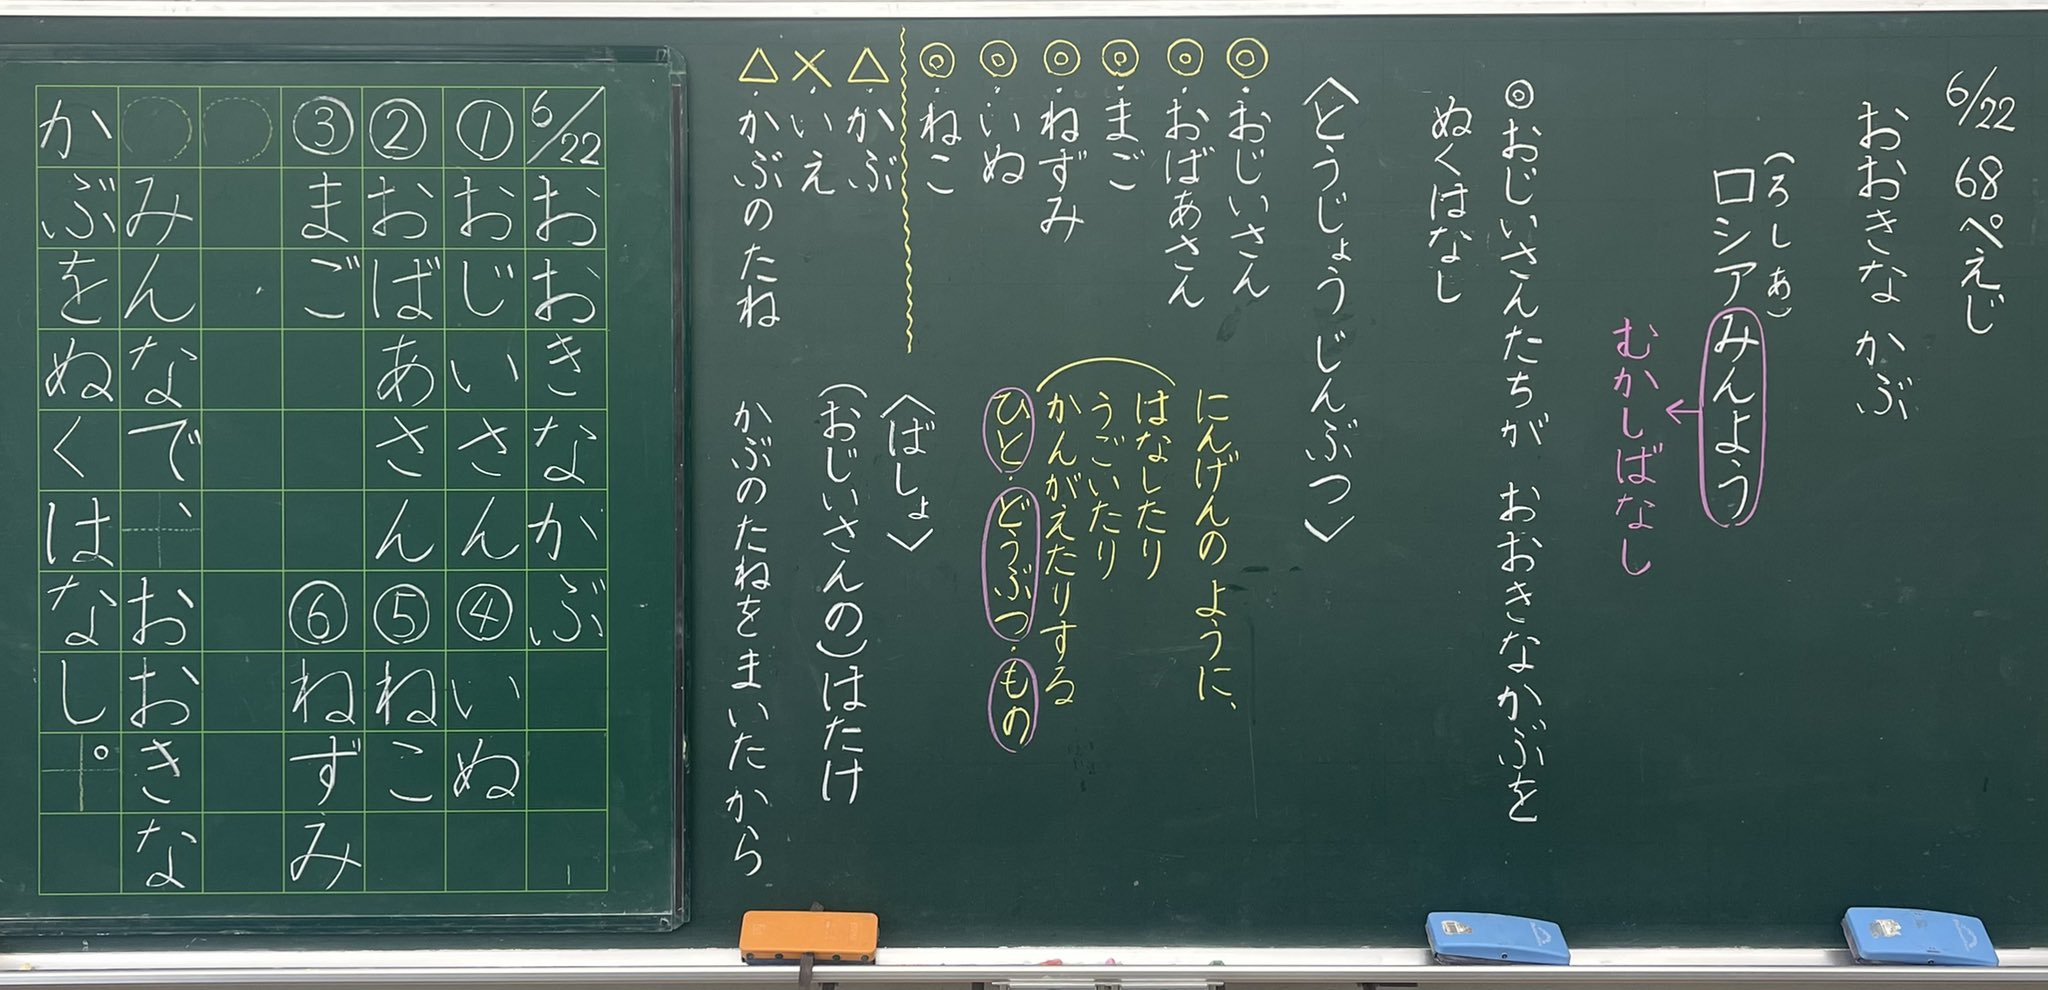 6/22 68ぺえじ
おおきな かぶ
(ろしあ)
ロシアみんよう
むかしばなし
◎おじいさんたちが おおきなかぶを
ぬくはなし
〈とうじょうじんぶつ〉
◎・おじいさん
◎・おばあさん
◎・まご
◎・ねずみ
◎・いぬ
◎・ねこ
にんげんのように、
はなしたり
うごいたり
かんがえたりする
ひと・どうぶつ・もの
△・かぶ
×・いえ
△・かぶのたね
〈ばしょ〉
(おじいさんの)はたけ
かぶのたねをまいたから
6/22 おおきなかぶ
①おじいさん ④いぬ
②おばあさん ⑤ねこ
③まご ⑥ねずみ
みんなで、おおきな
かぶをぬくはなし。